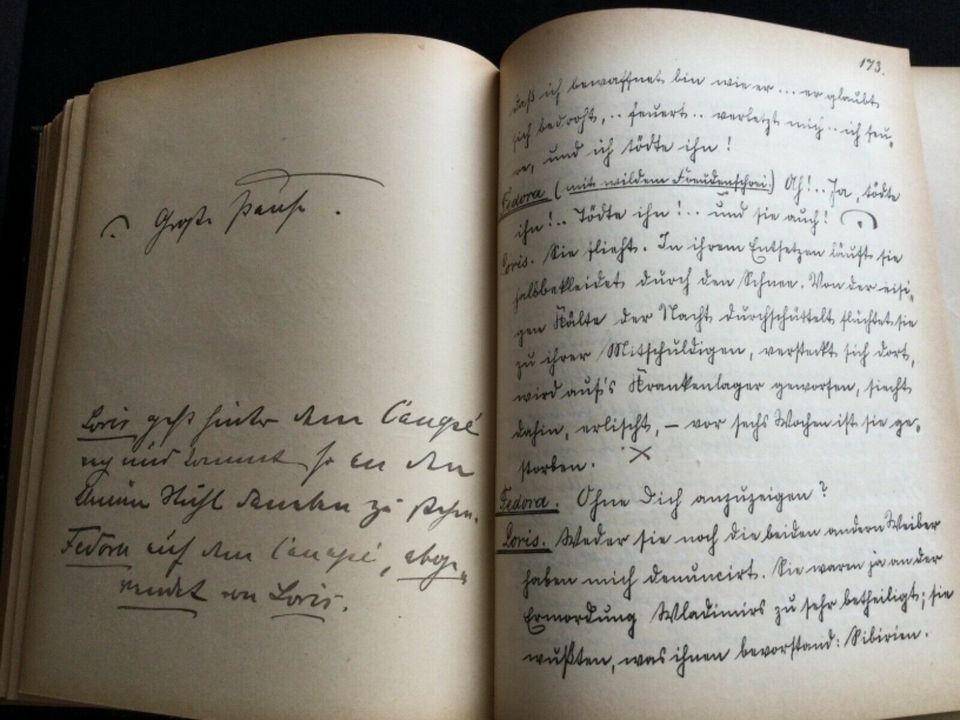 Große Pause.
Loris geht hinter dem Canapé
und kommt so an den
Stuhl daneben zu stehen.
Fedora auf dem Canapé, abge-
wendet von Loris.
173.
daß ich bewaffnet bin wie er... er glaubt
sich bedroht,.. feuert.. verletzt mich.. ich feu-
re, und ich tödte ihn!
Fedora (mit wildem Freudenschrei.) Ah!.. Ja, tödte
ihn!.. Tödte ihn!.. und sie auch!
Loris. Sie flieht. In ihrem Entsetzen läuft sie
halbbekleidet durch den Schnee. Von der eisi-
gen Kälte der Nacht durchschüttelt flüchtet sie
zu ihrer Mitschuldigen, versteckt sich dort,
wird auf's Krankenlager geworfen, siecht
dahin, erlischt, – vor sechs Wochen ist sie ge-
storben.
Fedora. Ohne Dich anzuzeigen?
Loris. Weder sie noch die beiden andern Weiber
haben mich denuncirt. Sie waren ja an der
Ermordung Wladimirs zu sehr betheiligt; sie
wußten, was ihnen bevorstand: Sibirien.